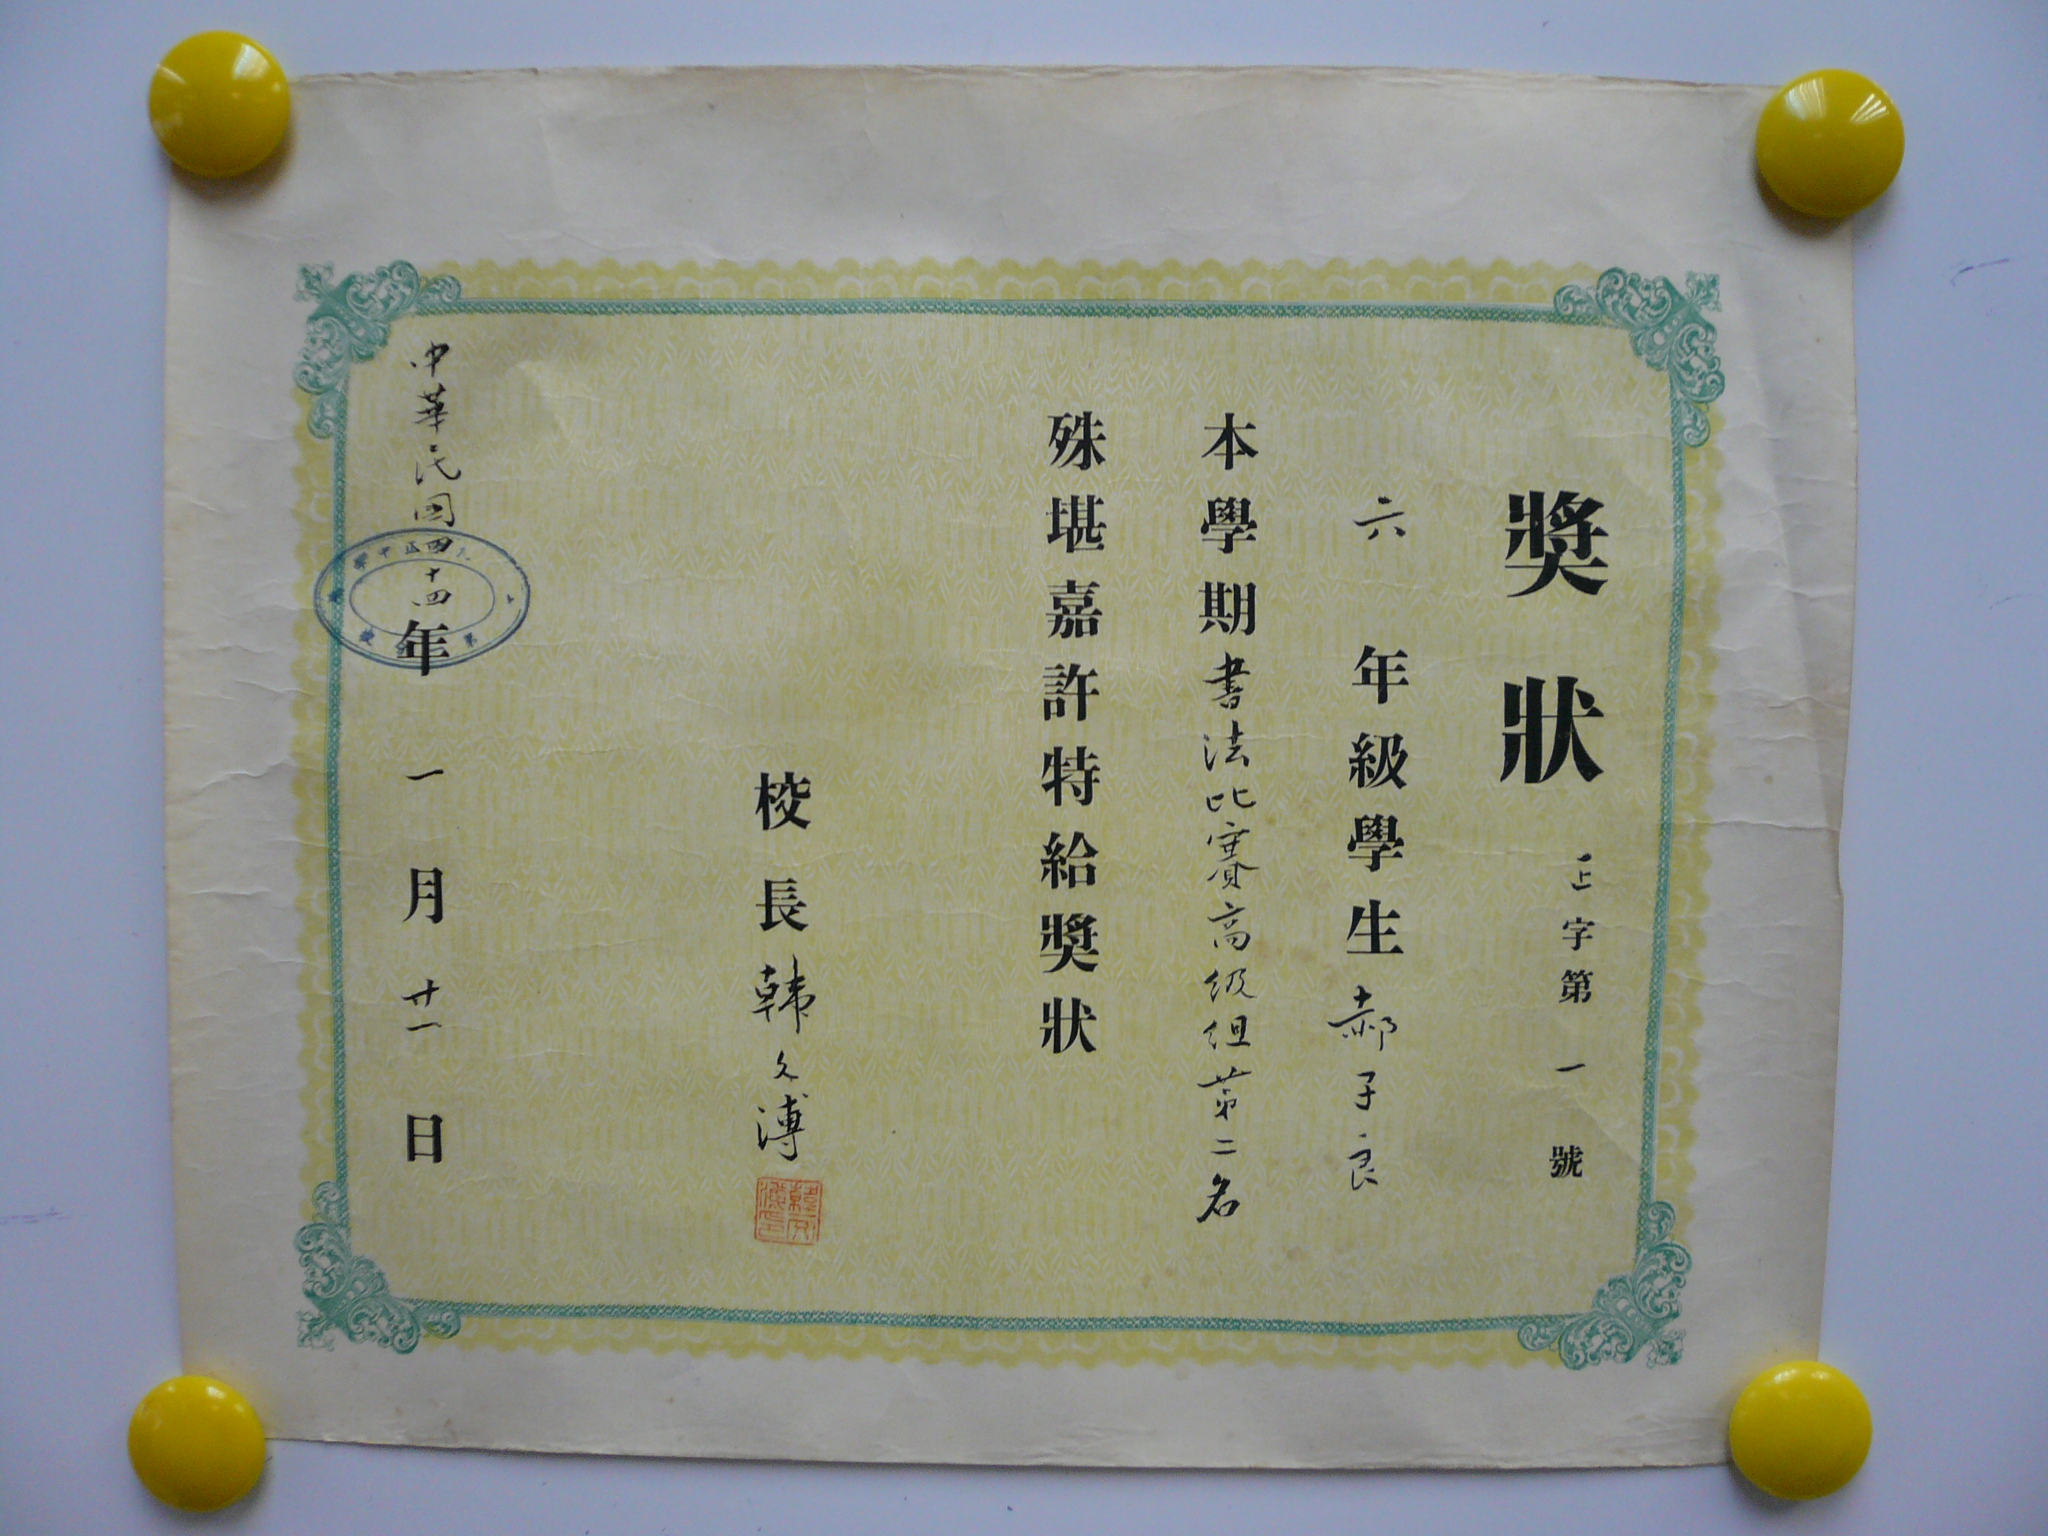 獎狀
正字第一號
六年級學生郝子良
本學期書法比賽高級組第二名
殊堪嘉許特給獎狀
校長韓文溥
中華民國四十四年一月廿一日